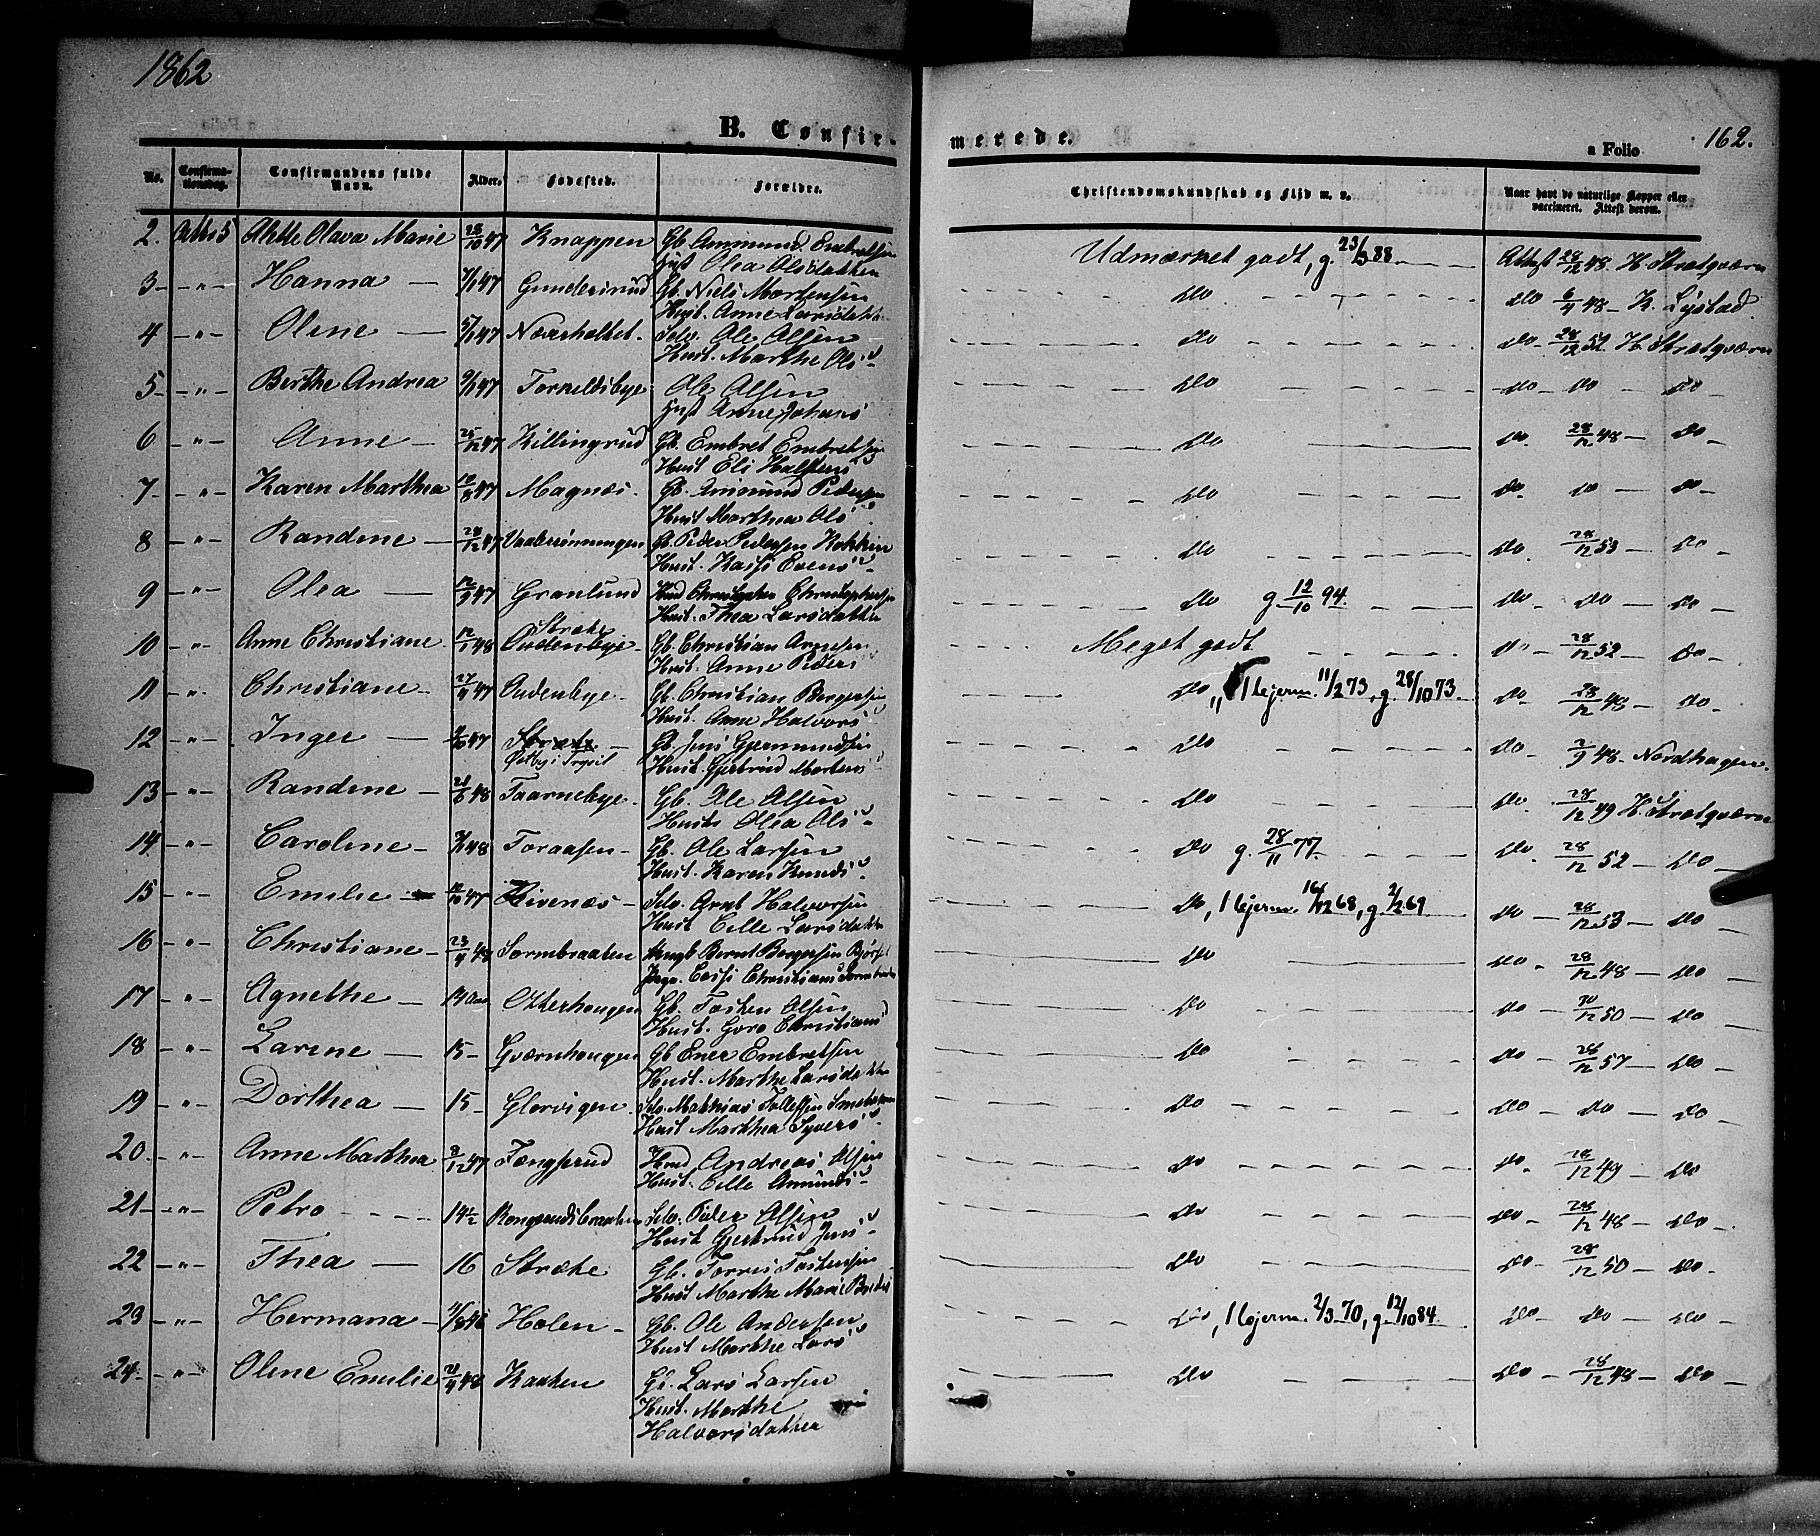 1862
162.
B. Confirmerede.
a Folio
No.
Confirmationsdag.
Confirmandens fulde Navn.
Alder.
Fødested.
Forældre.
Christendomskundskab og Flid m. v.
Naar havt de naturlige Kopper eller vaccineret. Attest derom.
2. Olava Marie 28/10 47 Knappen Gb. Ammund Embretsen
Hust Olea Olsdatter
Udmærket godt, g. 23/3 88 Attest 28/12 48 H. Strætqværn
3 - " - Hanna 47 Gundersrud Gb. Niels Mortensen
Hust. Anne Larsdatter
Do Do 6/4 48 K. Lystad
4 - " - Oline - 47 Nærholtet Selv. Ole Olsen
Hust. Marthe Ols
Do Do - 28/12 52 H. Strætqværn
5 - " - Berthe Andrea 47 Torkeldsbye Ole Olsen
Hust Anne Johans
Do Do Do Do
6 - " - Anne - 25/12 47 Killingrud Gb. Embret Embretsen
Hust Eli Halstens
Do Do 28/12 48 - Do
7 - " - Karen Marthea 10/8 47 Magnæs Gb. Amund Pedersen
Hust Marthea Ols
Do Do Do - Do -
8 - " - Randine - 28/12 47 Gb. Peder Pedersen
Hust. Kaisi Evens
Do Do. 28/12 53 - Do
9 - " - Olea - 12/9 47 Granlund Christopher Christophersen
Hust. Thea Larsdatter
Do g 12/10 94. Do - Do - Do
10 - " - Anne Christiane 12/1 48 Stræte
Audenbye Gb. Christian Arnesen
Hust. Anne Peders
Meget godt Do 28/12 52 - Do -
11 - " - Christiane - 27/4 47 Audenbye - Gb. Christian Borgersen
Hust. Anne Halvors
Do 11/2 73, g. 28/10 73 Do - 28/12 48 - Do -
12 - " - Inger - 47 Stræte
Østby i Trysil Gb. Jens Gjermundsen
Hust. Gjertrud Mortens
Do Do - 2/9 48 - Nordhagen
13 - " - Randine - 48 Taarnebye - Gb. Ole Olsen
Hust Olea Ols
Do Do. 28/12 49 H. Strætqværn
14 - " - Caroline - 48 Toraasen - Gb. Ole Larsen
Hust. Karen Knuds
Do g. 28/11 77. Do 28/12 52 - Do
15 - " - Emilie 47 Rivenæs - Selv. Arnt Halvorsen
Hust Eille Larsdatter
Do, 68, g. 2/2 69 Do - 28/12 53 - Do
16 - " - Christiane - 23/4 Sormbraaten Bernt Borgersen
Christians
Do Do - 28/12 48 - Do
17 - " - Agnethe - 14 Aar Otterhougen Gb. Tosten Olsen
Hust. Goro Christians
Do Do - 50 - Do
18 - " - Larine - 15 - Gværnhougen Gb Ener Embretsen
Hust. Marthe Larsdatter
Do Do - 28/12 57 - Do
19 - " - Dorthea - 15 - Glorvigen Selv. Mathias Tollefsen
Hust Marthea Syvers
Do Do - Do - Do
20 - " - Anne Marthea 8/12 47 Fængsrud Andreas Olsen
Hust. Eille Amunds
Do Do. 28/12 49 - Do
21 - " - Petra 14½ Rongsrudsbraaten Selv. Peder Olsen
Hust Gjertrud Jens
Do Do - 28/12 48 - Do
22 - " - Thea - 16 Stræte Gb. Torris Tostensen
Hust Marthe Marie
Do Do - 28/12 50 - Do -
23 - " - Hermana - 46 Holen - Gb. Ole Andersen
Hust Marthe Lars
Do, 2/3 70, g. 12/10 84 Do - Do - Do
24 - " - Oline Emilie 21/4 48 Kaaten Gb. Lars Larsen
Hust. Marthe
Halvorsdatter
Do Do - 28/12 48 - Do -